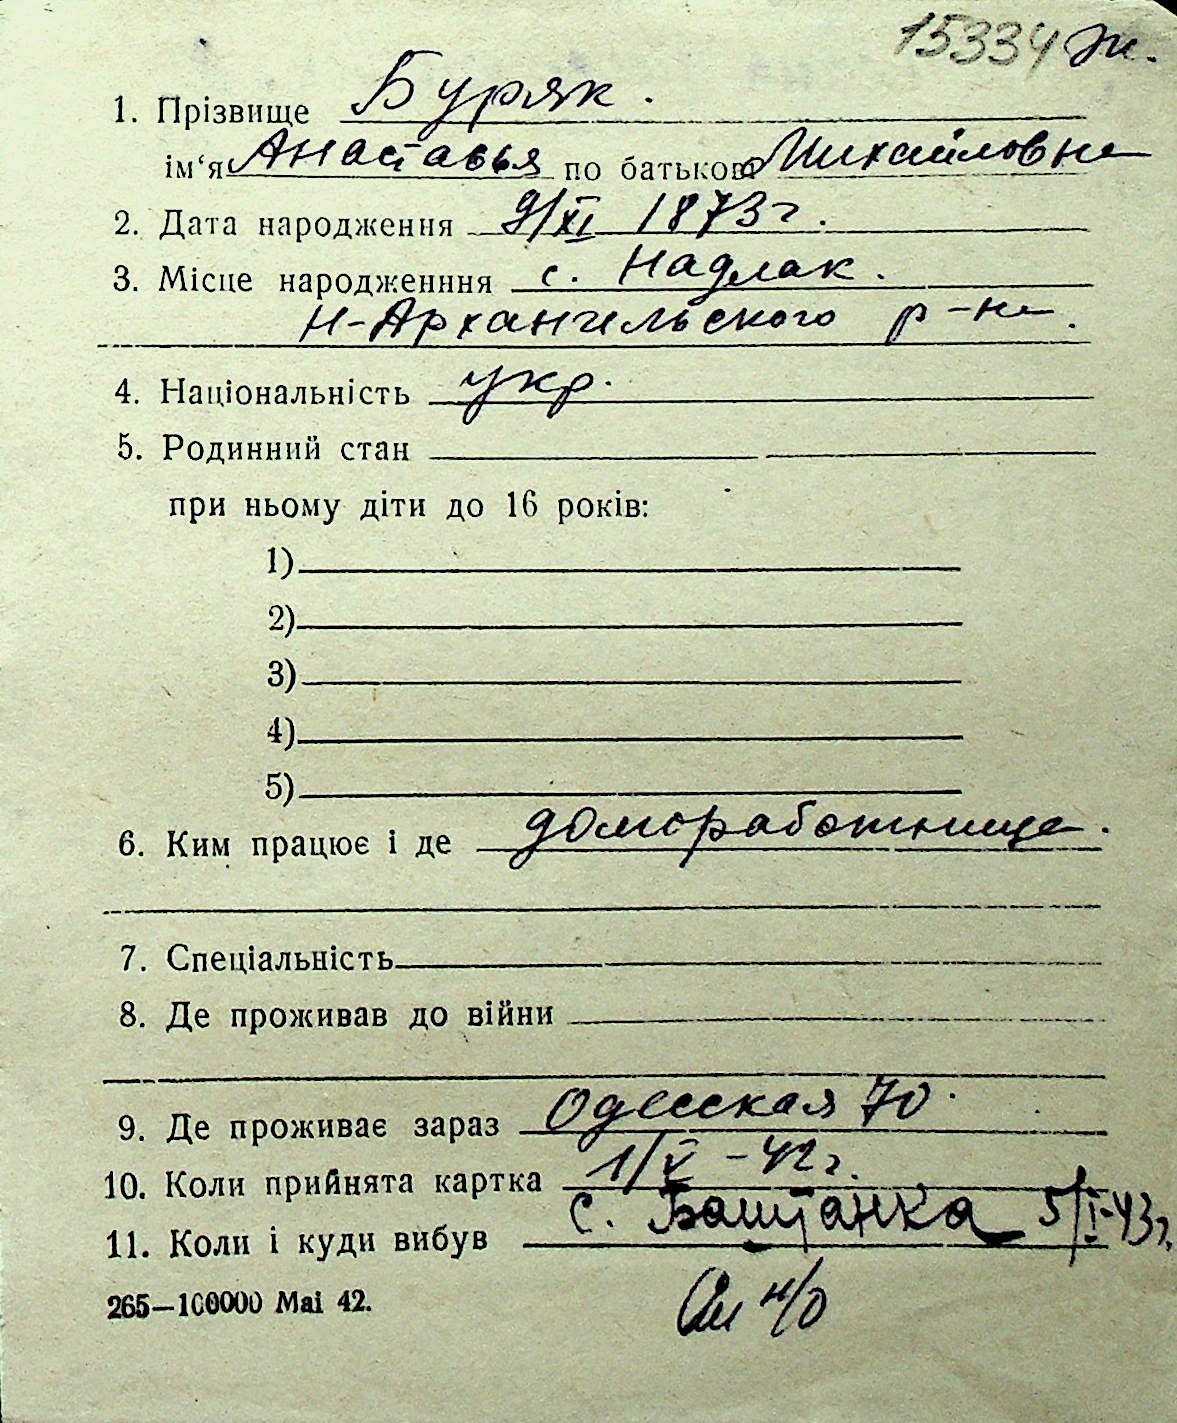 15334 Ж.
1. Прізвище Буряк.
ім‘я Анаставья по батькові Михайловна
2. Дата народження 9/XI 1873 г.
3. Місце народженння с. Надлак.
Н-Архангельского р-на.
4. Національність укр.
5. Родинний стан
при ньому діти до 16 років:
1)
2)
3)
4)
5)
6. Ким працює і де домоработница.
7. Спеціальність
8. Де проживав до війни
9. Де проживає зараз Одесская 70.
10. Коли прийнята картка 1/V-42 г.
11. Коли і куди вибув с. Баштанка 5/I-43 г.
265—100000 Mai 42.